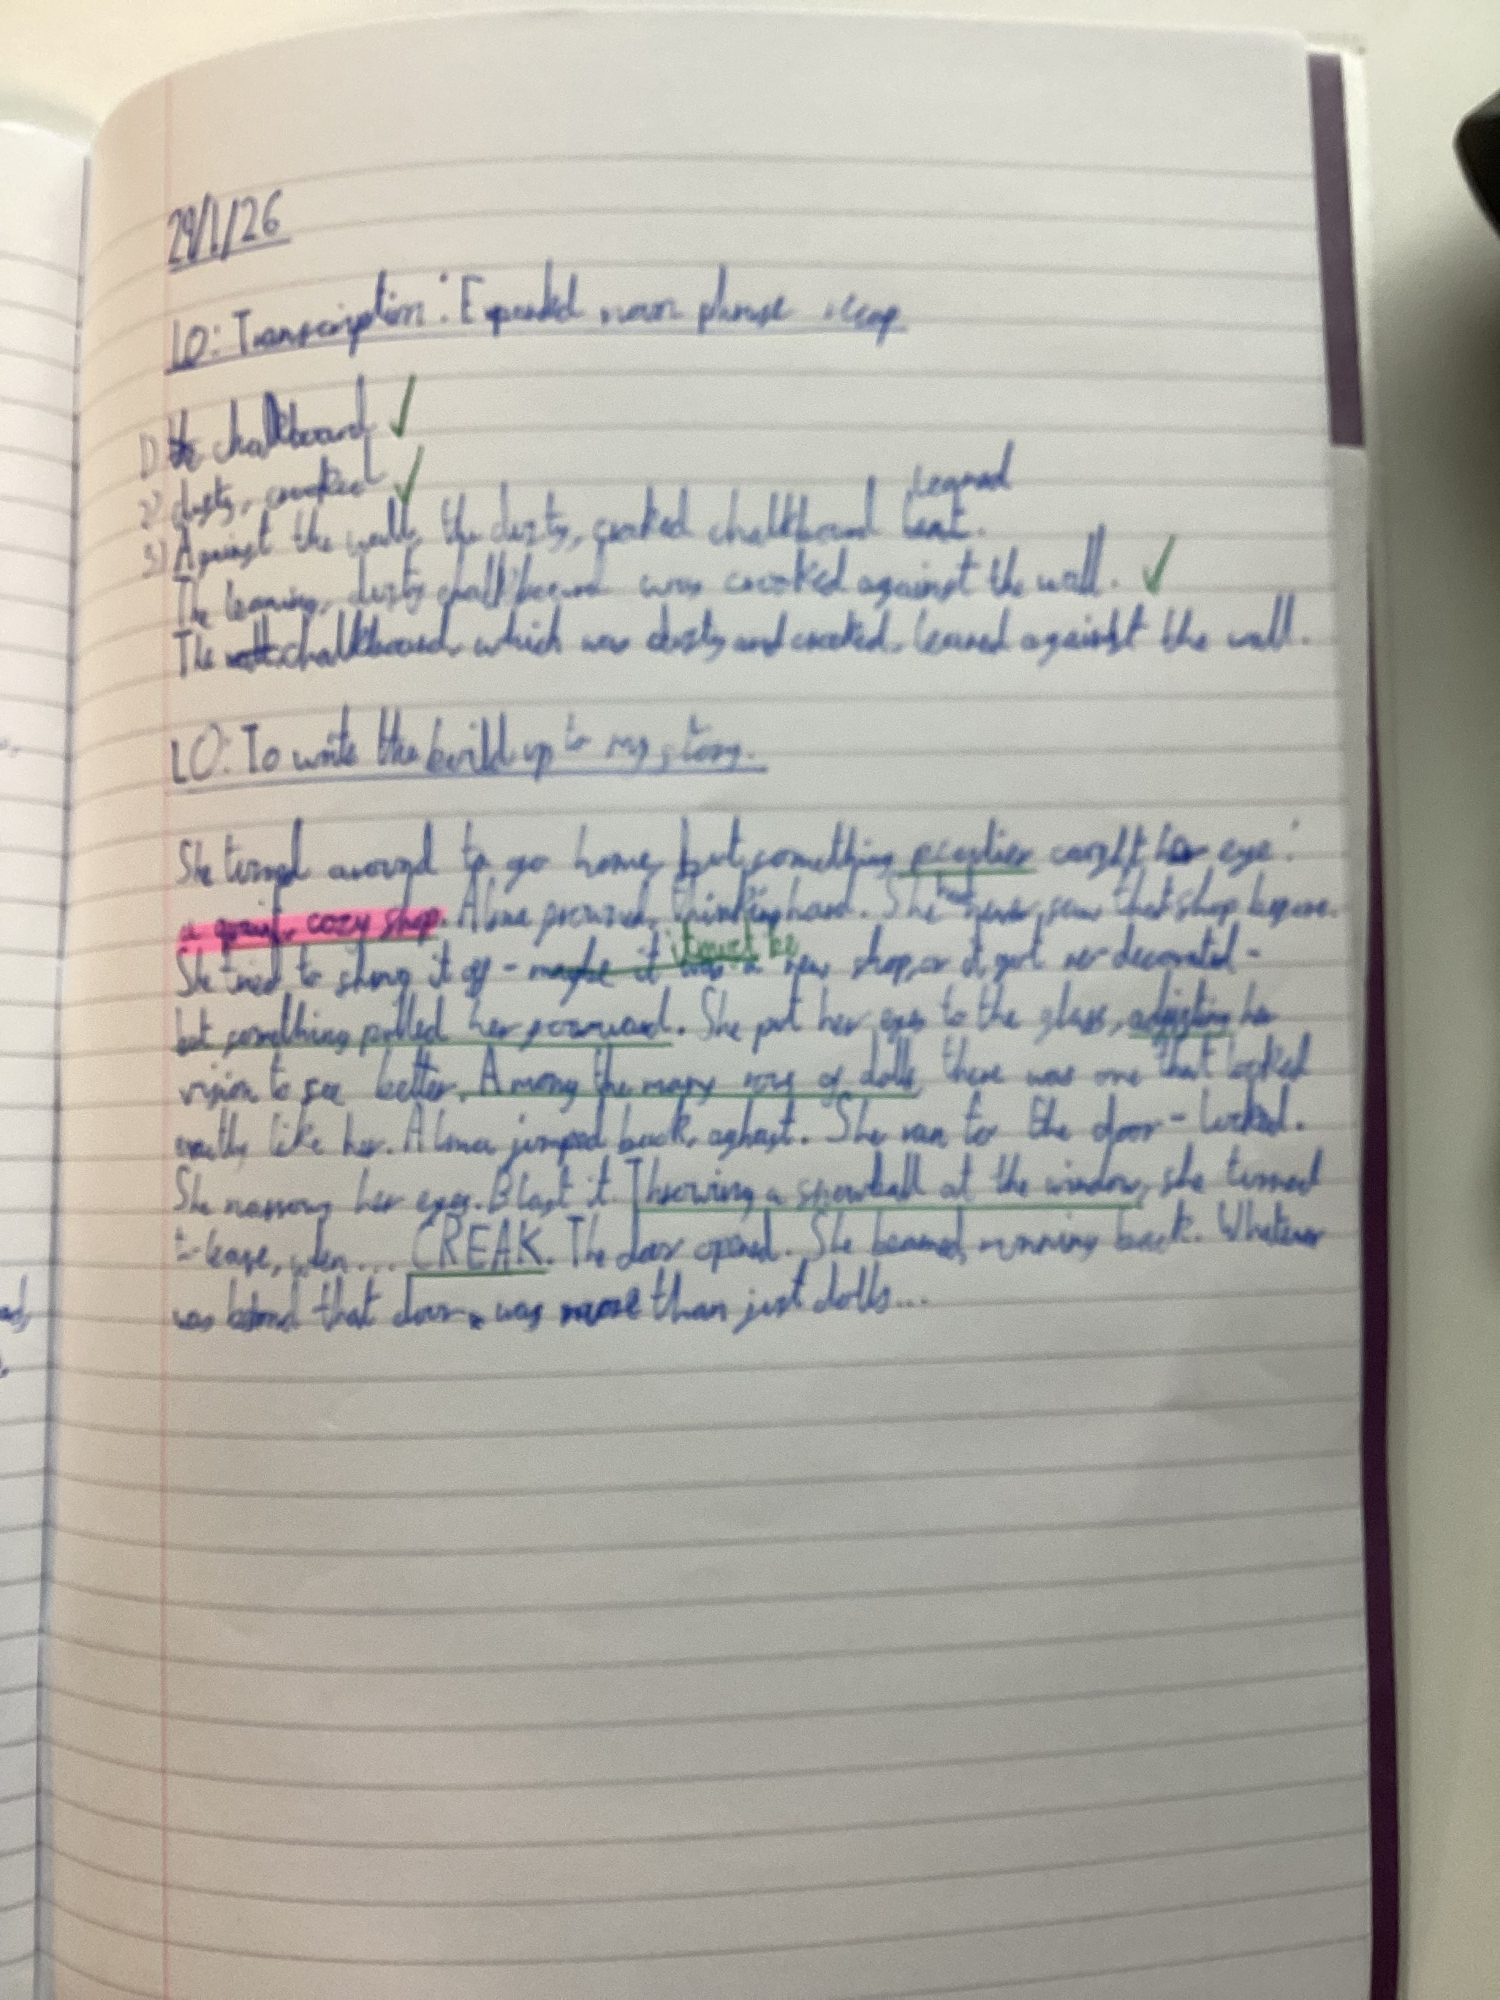 29/1/26
LO: Transcription: Expanded noun phrase recap
1) the chalkboard
2) dusty, crooked
leaned
3) Against the wall, the dusty, crooked chalkboard leant.
The leaning, dusty chalkboard was crooked against the wall.
The chalkboard, which was dusty and crooked, leaned against the wall.
LO: To write the build up to my story.
She turned around to go home, but something peculier caught her eye:
a quaint, cozy shop. Alma frowned, thinking hard. She had never seen that shop before.
it must be
She tried to shrug it off - maybe it was a new shop, or it got re-decorated -
but something pulled her forward. She put her eyes to the glass, adjusting her
vision to see better. Among the many rows of dolls, there was one that looked
exactly like her. Alma jumped back, aghast. She ran to the door - locked.
She narrowed her eyes. Blast it. Throwing a snowball at the window, she turned
to leave, when... CREAK. The door opened. She beamed, running back. Whatever
was behind that door, was more than just dolls...